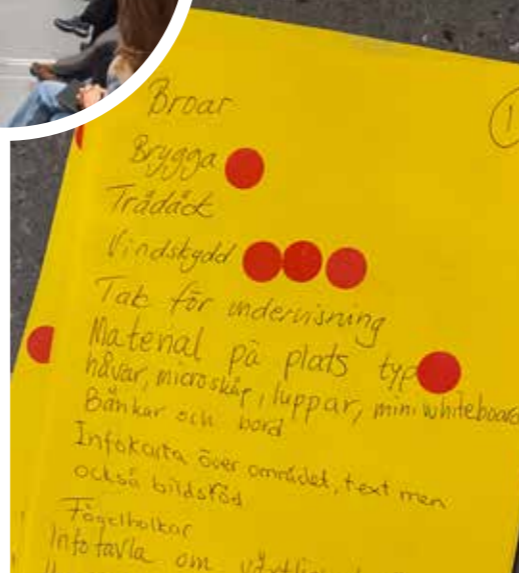 1
Broar
Brygga
Trädäck
Vindskydd
Tak för undervisning
Material på plats typ
håvar, microskåp, luppar, miniwhiteboard
Bänkar och bord
Infokarta över området, text men
också bildstöd
Fågelholkar
Infotavla om